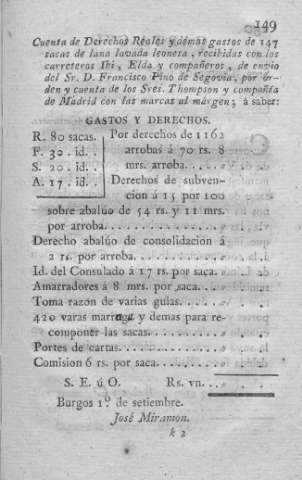 149
Cuenta de Derechos Reales y demas gastos de 147
sacas de lana lavada leonesa, recibidas con los
carreteros Ibi, Elda y compañeros, de envio
del Sr. D. Francisco Pino de Segovia, por ór-
den y cuenta de los Sres. Thompson y compañía
de Madrid con las marcas al márgen; á saber:
GASTOS Y DERECHOS.
R. 80 sacas.
F. 30 . id. .
S. 20 . id. .
A. 17 . id. .
Por derechos de 1162
arrobas á 70 rs. 8
mrs. arroba.
Derechos de subven-
cion á 15 por 100
sobre abalúo de 54 rs. y 11 mrs.
por arroba.
Derecho abalúo de consolidacion á
2 rs. por arroba.
Id. del Consulado á 17 rs. por saca.
Amarradores á 8 mrs. por saca.
Toma razon de varias guias.
420 varas marraga y demas para re-
componer las sacas.
Portes de cartas.
Comision 6 rs. por saca.
S. E. ú O. Rs. vn.
Burgos 1.º de setiembre.
José Miramon.
k 2